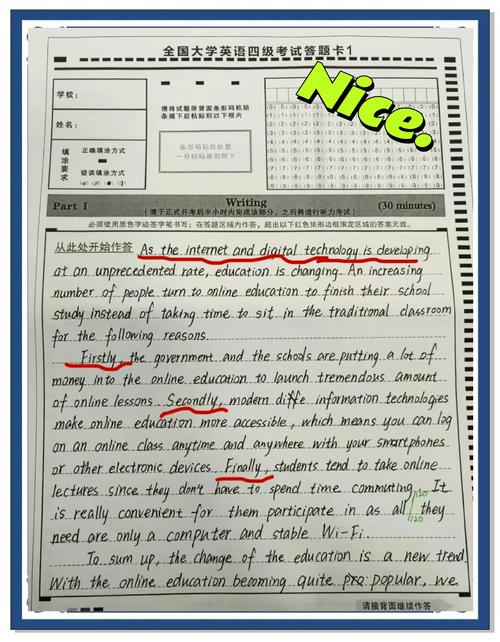 全国大学英语四级考试答题卡1
Nice.
学校：
姓名：
请将试题册背面条形码粘贴
条揭下后粘贴到以下框内
条形码粘贴位置
填涂要求
正确填涂方式
错误填涂方式
Part I Writing (30 minutes)
(请于正式开考后半小时内完成该部分，之后将进行听力考试)
必须使用黑色字迹签字笔书写；在答题区域内作答，超出以下红色矩形边框限定区域的答案无效。
从此处开始作答 As the internet and digital technology is developing
at an unprecedented rate, education is changing. An increasing
number of people turn to online education to finish their school
study instead of taking time to sit in the traditional classroom
for the following reasons.
Firstly, the government and the schools are putting a lot of
money into the online education to launch tremendous amount
of online lessons. Secondly, modern diffe information technologies
make online education more accessible, which means you can log
on an online class anytime and anywhere with your smartphones
or other electronic devices. Finally, students tend to take online
lectures since they don't have to spend time commuting. It
120
is really convenient for them participate in as all they
120
need are only a computer and stable Wi-Fi.
To sum up, the change of the education is a new trend.
With the online education becoming quite pro popular, we
请接背面继续作答